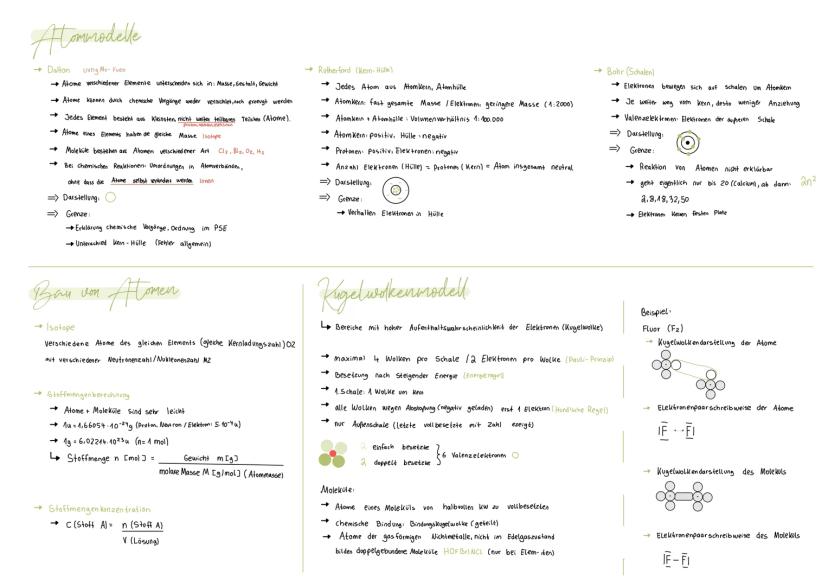 Atommodelle
→ Dalton
→ Atome verschiedener Elemente unterscheiden sich in: Masse, Gestalt, Gewicht
→ Atome können durch chemische Vorgänge weder vernichtet, noch erzeugt werden
→ Jedes Element besteht aus kleinsten, nicht weiter teilbaren Teilchen (Atome).
→ Atome eines Elements haben die gleiche Masse Isotope
→ Moleküle bestehen aus Atomen verschiedener Art Cl₂, Br₂, O₂, H₂
→ Bei chemischen Reaktionen: Umordnungen in Atomverbänden,
ohne dass die Atome selbst verändert werden Ionen
⇒ Darstellung:
⇒ Grenze:
→ Erklärung chemische Vorgänge, Ordnung im PSE
→ Unterschied Kern-Hülle (Fehler allgemein)
→ Rutherford (Kern-Hülle)
→ Jedes Atom aus Atomkern, Atomhülle
→ Atomkern: fast gesamte Masse / Elektronen geringere Masse (1:2000)
→ Atomkern + Atomhülle: Volumenverhältnis 1:100.000
→ Atomkern: positiv, Hülle: negativ
→ Protonen: positiv, Elektronen: negativ
→ Anzahl Elektronen (Hülle) = Protonen (Kern) = Atom insgesamt neutral
⇒ Darstellung:
⇒ Grenze:
→ Verhalten Elektronen in Hülle
→ Bohr (Schalen)
→ Elektronen bewegen sich auf Schalen um Atomkern
→ Je weiter weg vom Kern, desto weniger Anziehung
→ Valenzelektronen: Elektronen der äußeren Schale
⇒ Darstellung:
⇒ Grenze:
→ Reaktion von Atomen nicht erklärbar
→ geht eigentlich nur bis 20 (Calcium), ab dann: 2n²
2, 8, 18, 32, 50
→ Elektronen keinen festen Platz
Bau von Atomen
→ Isotope
Verschiedene Atome des gleichen Elements (gleiche Kernladungszahl) OZ
mit verschiedener Neutronenzahl / Nukleonenzahl MZ
→ Stoffmengenberechnung
→ Atome + Moleküle sind sehr leicht
→ 1u = 1,66054 · 10⁻²⁴g (Proton, Neutron / Elektron: 5·10⁻⁴u)
→ 1g = 6,02214 · 10²³u (n = 1 mol)
↳ Stoffmenge n [mol] = Gewicht m [g]
molare Masse M [g/mol] (Atommasse)
→ Stoffmengenkonzentration
→ C (Stoff A) = n (Stoff A)
V (Lösung)
Kugelwolkenmodell
↳ Bereiche mit hoher Aufenthaltswahrscheinlichkeit der Elektronen (Kugelwolke)
→ maximal 4 Wolken pro Schale / 2 Elektronen pro Wolke (Pauli-Prinzip)
→ Besetzung nach steigender Energie (Energieregel)
→ 1. Schale: 1 Wolke um Kern
→ alle Wolken wegen Abstoßung (negativ geladen) erst 1 Elektron (Hundsche Regel)
→ nur Außenschale (letzte vollbesetzte mit Zahl)
2 einfach besetzte
2 doppelt besetzte } 6 Valenzelektronen O
Moleküle:
→ Atome eines Moleküls von halbvollen KW zu vollbesetzten
→ chemische Bindung: Bindungskugelwolke (geteilt)
→ Atome der gasförmigen Nichtmetalle, nicht im Edelgaszustand
bilden doppelgebundene Moleküle HOFBrINCl (nur bei Elementen)
Beispiel:
Fluor (F₂)
→ Kugelwolkendarstellung der Atome
→ Elektronenpaarschreibweise der Atome
|F̲̅ · · F̲̅|
→ Kugelwolkendarstellung des Moleküls
→ Elektronenpaarschreibweise des Moleküls
|F̲̅ – F̲̅|